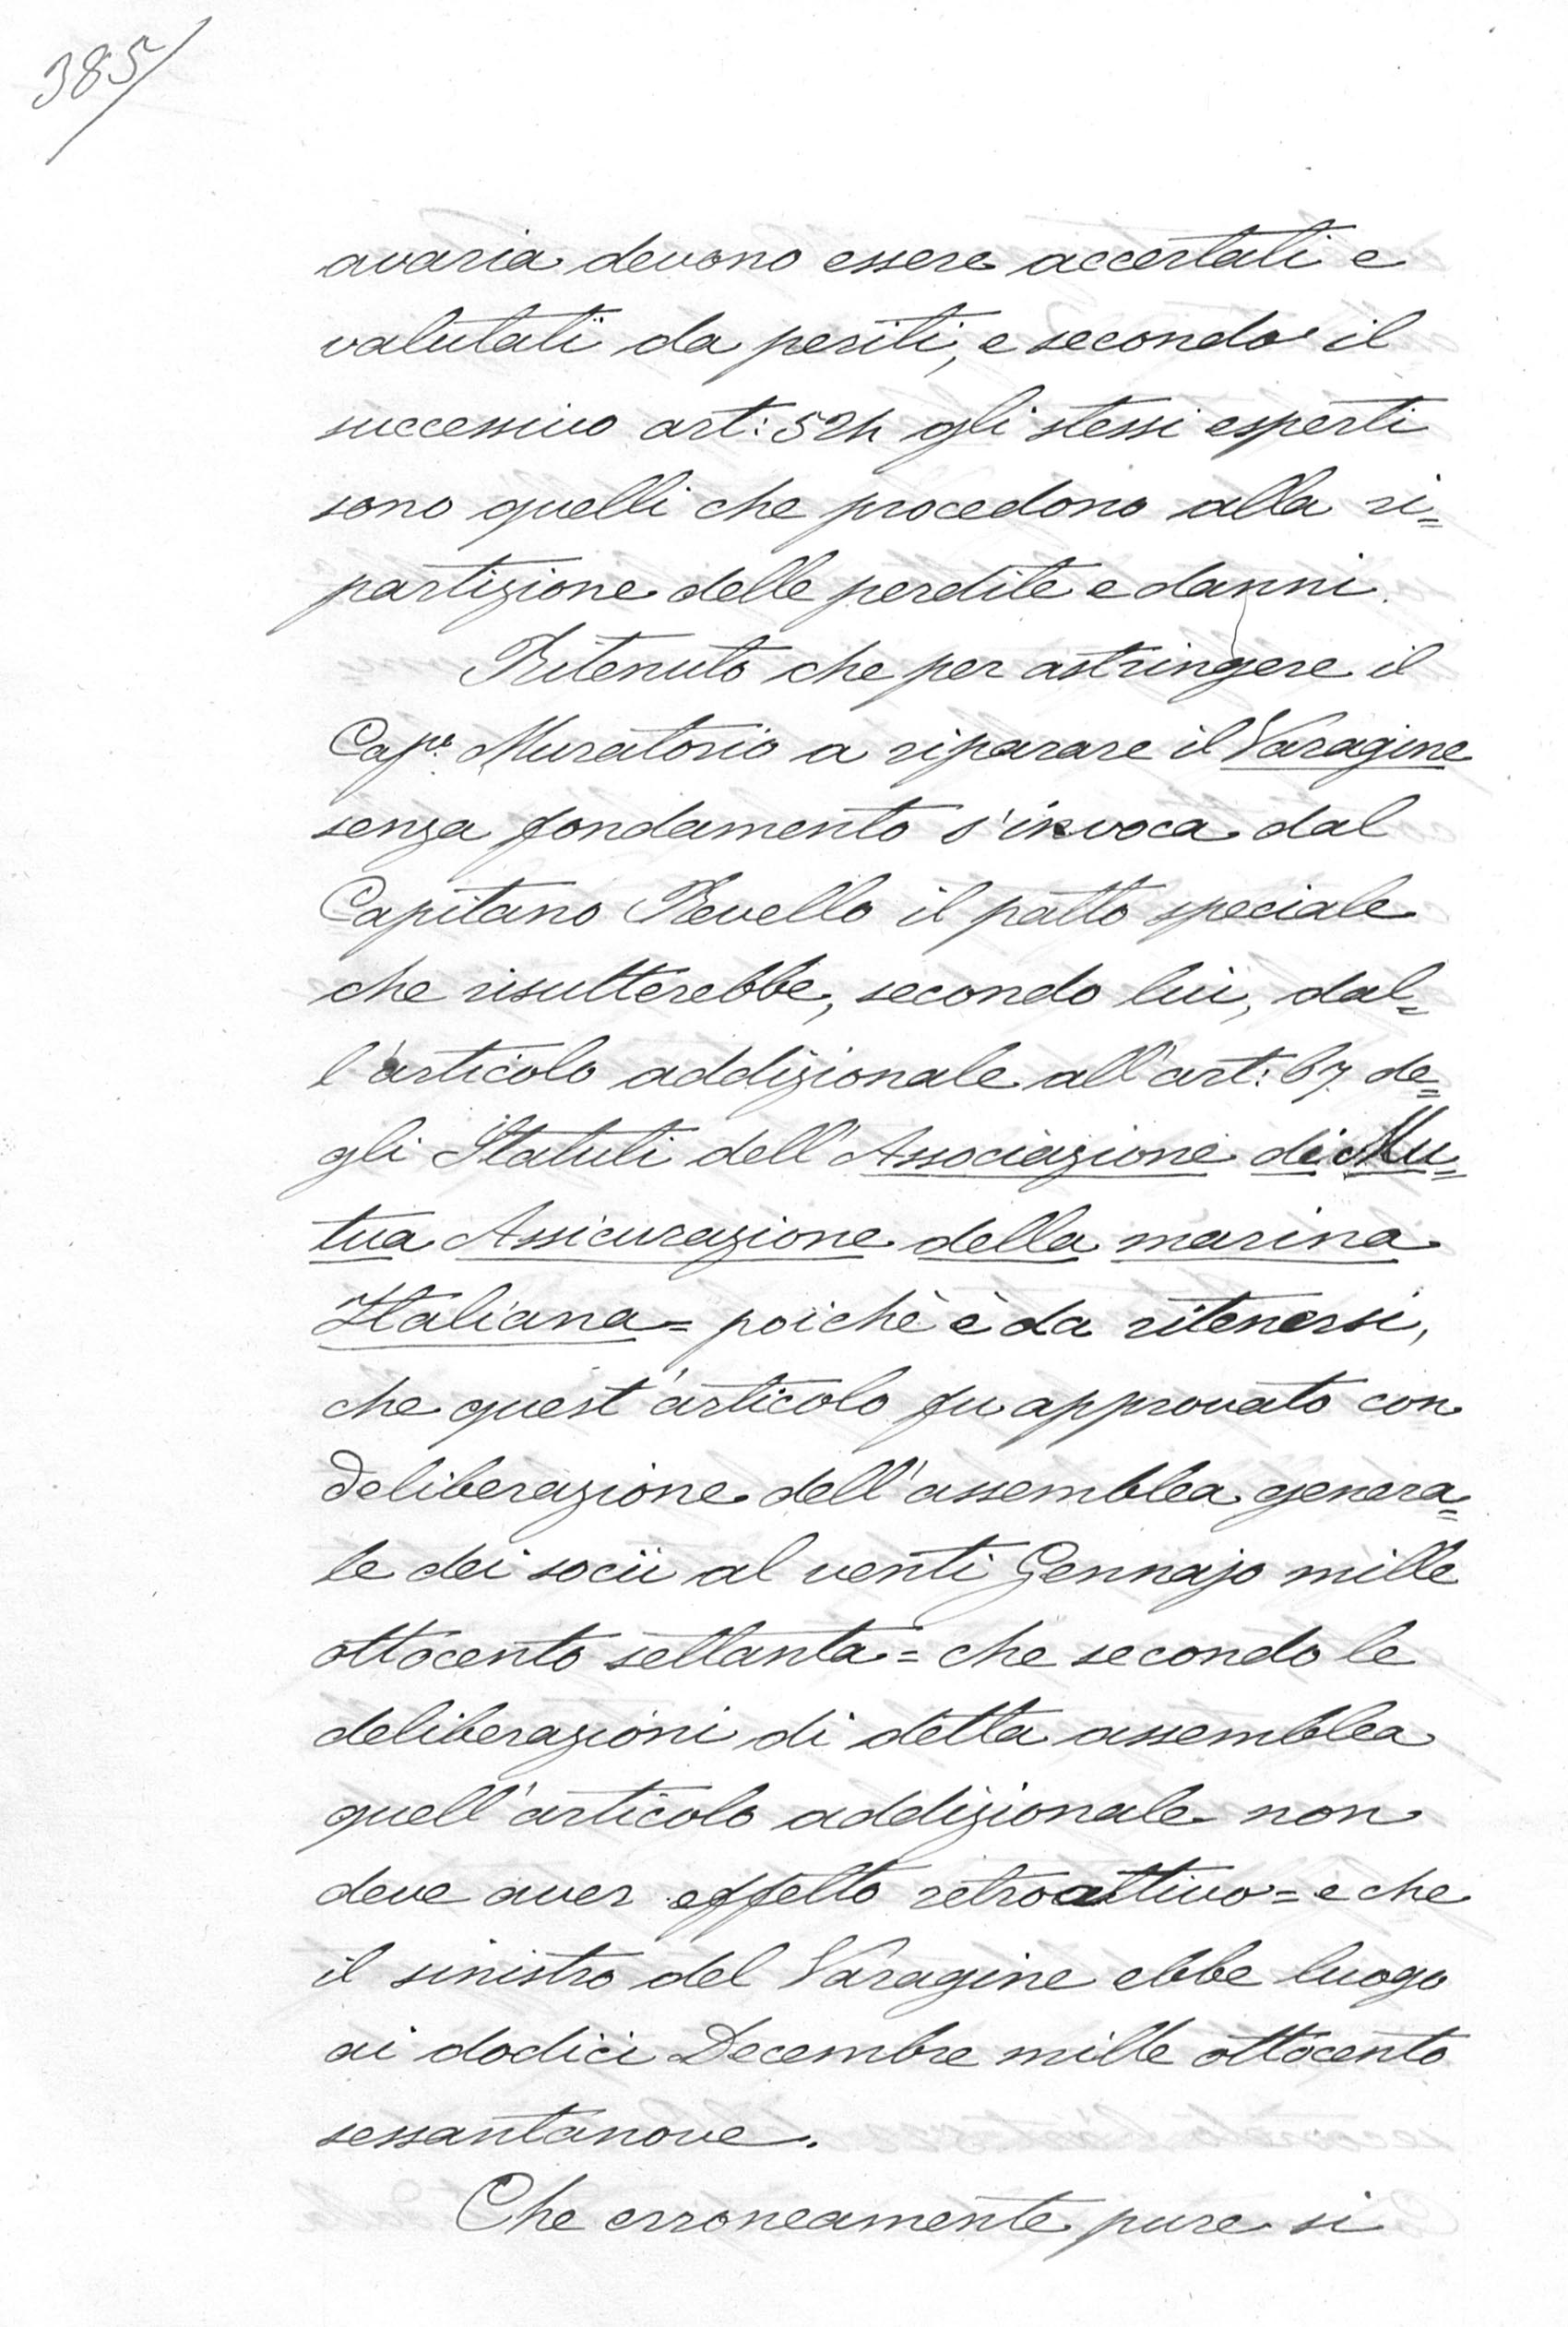 385/
avaria devono essere accertati e
valutati da periti, e secondo il
successivo art: 524 gli stessi esperti
sono quelli che procedono alla ri=
partizione delle perdite e danni.
Ritenuto che per astringere il
Cap.º Muratorio a riparare il Varagine
senza fondamento s'invoca dal
Capitano Revello il patto speciale
che risulterebbe, secondo lui, dal=
l'articolo addizionale all'art: 67 de=
gli Statuti dell'Associazione di Mu=
tua Assicurazione della marina
Italiana = poichè è da ritenersi,
che quest'articolo fu approvato con
deliberazione dell'assemblea genera=
le dei socii al venti Gennajo mille
ottocento settanta = che secondo le
deliberazioni di detta assemblea
quell'articolo addizionale non
deve aver effetto retroattivo = e che
il sinistro del Varagine ebbe luogo
ai dodici Decembre mille ottocento
sessantanove.
Che erroneamente pure si